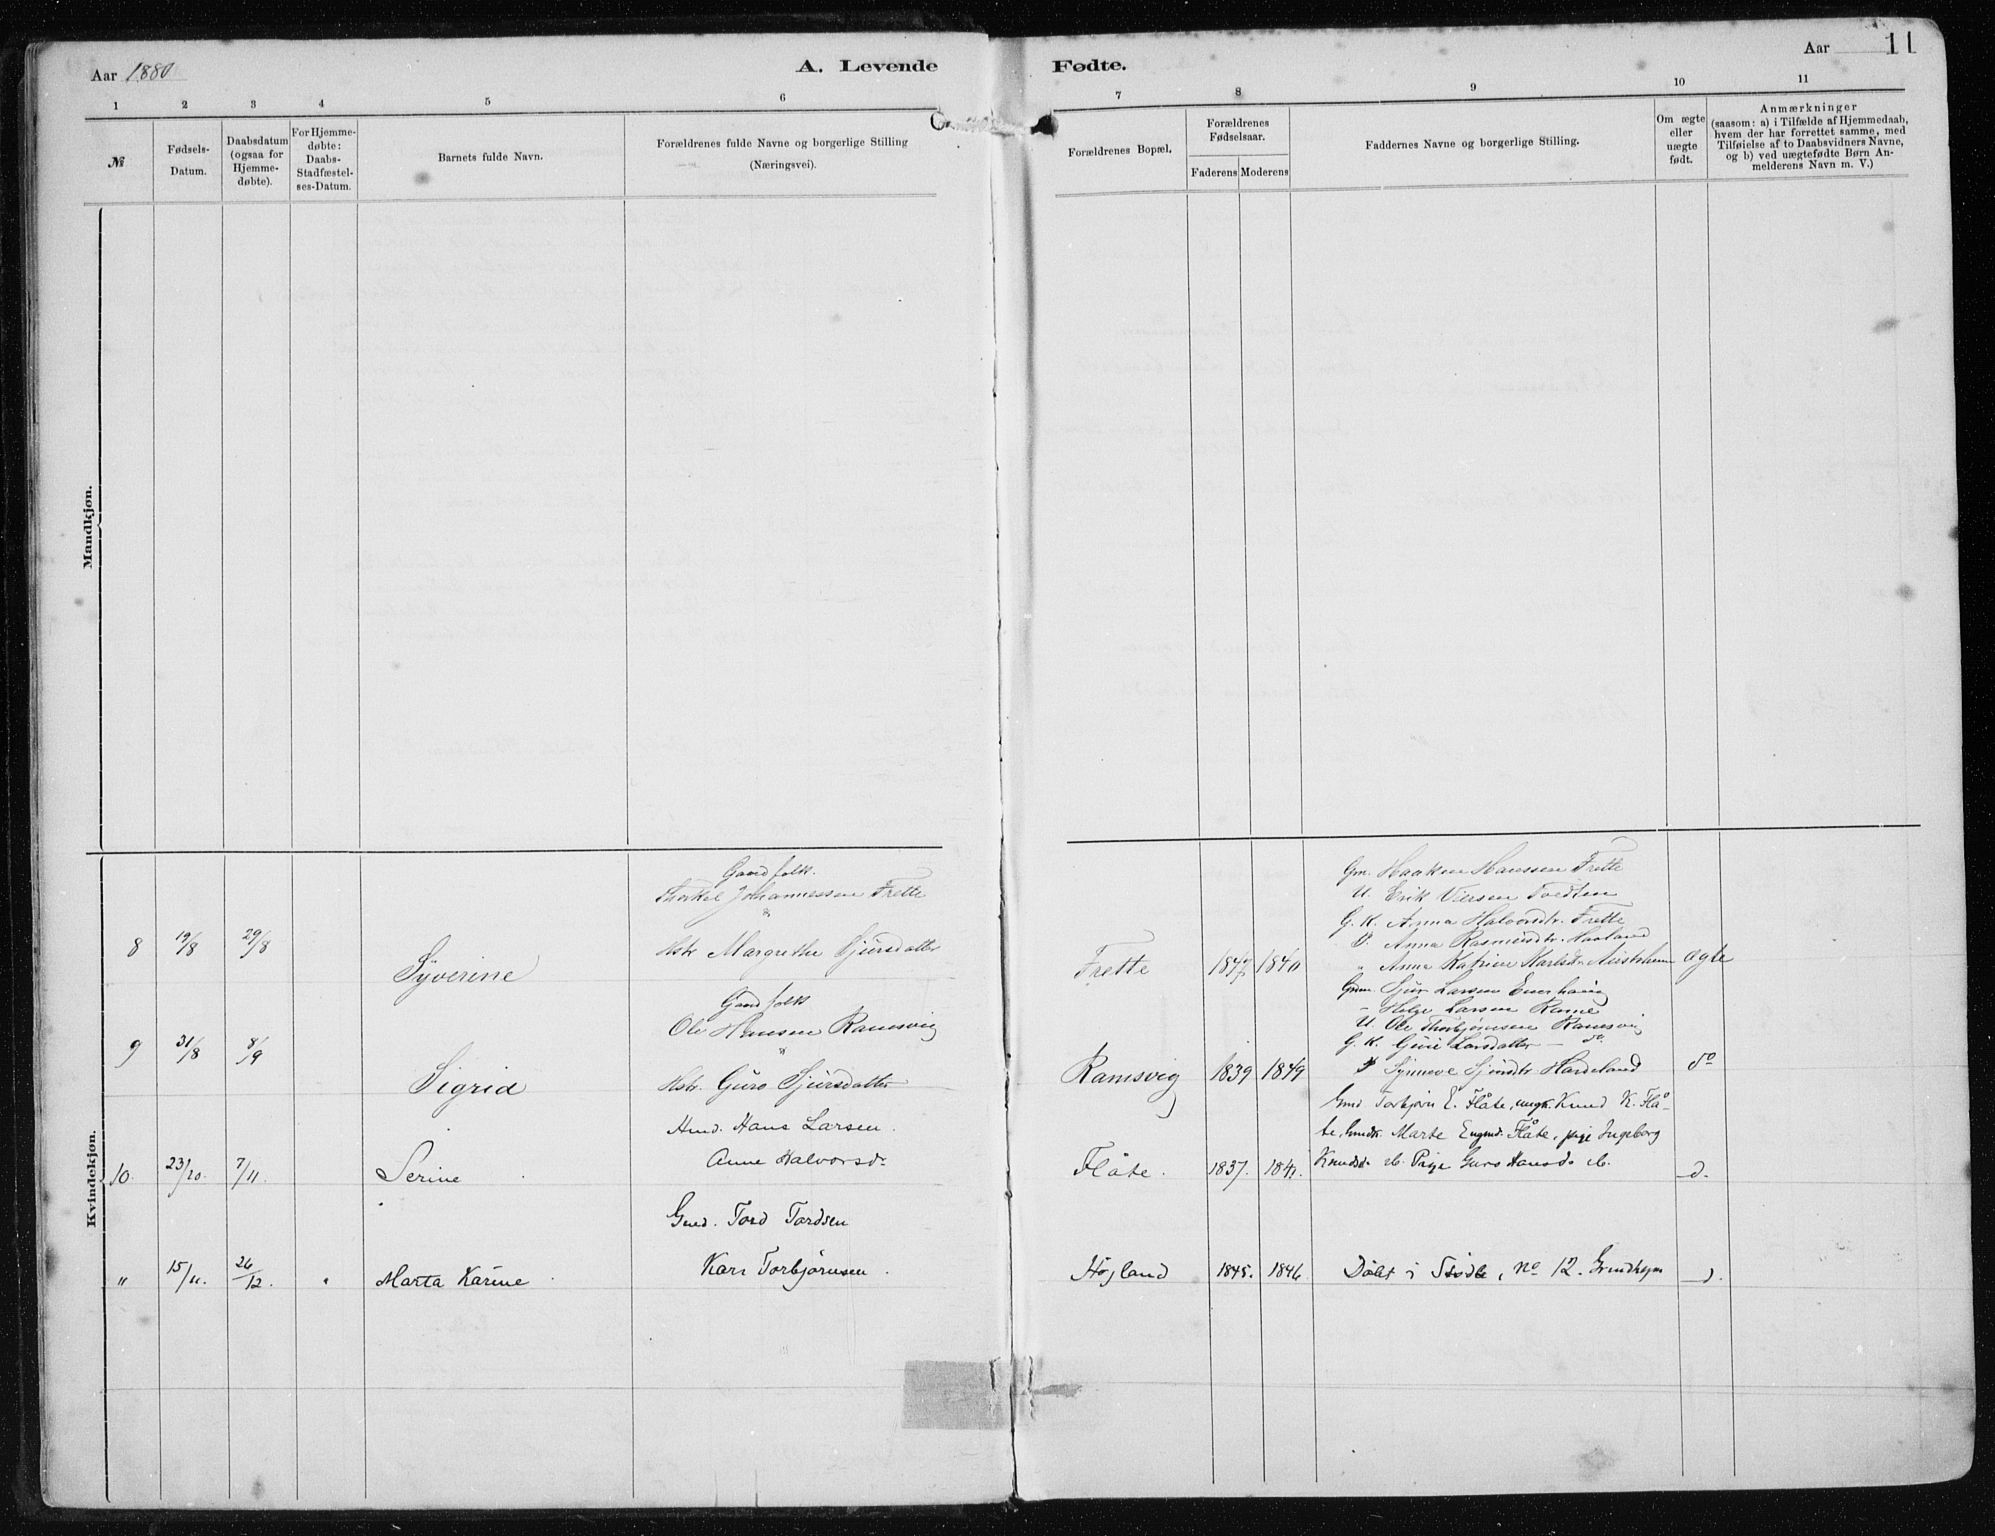 Aar 1880
A. Levende
Fødte.
Aar
11
1
2
3
4
5
6
7
8
9
10
11
№
Fødsels-
Datum.
Daabsdatum
(ogsaa for
Hjemme-
døbte).
For Hjemme-
døbte:
Daabs-
Stadfæstel-
ses-Datum.
Barnets fulde Navn.
Forældrenes fulde Navne og borgerlige Stilling
(Næringsvei).
Forældrenes Bopæl.
Forældrenes
Fødselsaar.
Faderens
Moderens
Faddernes Navne og borgerlige Stilling.
Om ægte
eller
uægte
født.
Anmærkninger
(saasom: a) i Tilfælde af Hjemmedaab,
hvem der har forrettet samme, med
Tilføielse af to Daabsvidners Navne,
og b) ved uægtefødte Børn An-
melderens Navn m. V.)
Mandkjøn.
Kvindekjøn.
Gaardfolk.
Thorkel Johannessen Frette
8 19/8 29/8 Syverine Hstr Margrethe Sjursdatter Frette 1847 1840
Gm. Haaken Hanssen Frette
U. Erik Viersen Tvedten
G. K. Anna Halvorsdtr. Frette
P. Anna Rasmusdtr. Haaland
" Anna Katrine Karlsdtr Austrheim ægte
Gaardfolk
Ole Hansen Ramsvig
9 31/8 8/9 Sigrid Hstr. Guro Sjursdatter Ramsvig 1839 1849
Gmm. Sjur Larsen Enerhaug
– Helge Larsen Rame
U. Ole Thorbjørnsen Ramsvig
G. K. Guri Larsdatter – do
P Synneve Sjursdtr Hardeland do
Hmd. Hans Larsen.
Anne Halvorsdr
10. 23/10. 7/11. Serine Flåte. 1837. 1841.
Gmd Torbjørn E. Flåte, ungk. Knud K. Flå-
te, Gmdk. Marte Engmd. Flåte, pige Ingeborg
Knudsd. ib. Pige Guro Hansd. ib. d.
Gmd. Tord Tordsen
Kari Torbjørnsen.
" 15/11. 26/12. " Marta Karine Højland 1845. 1846 Døbt i Stødle, No 12. Grindhejm d.